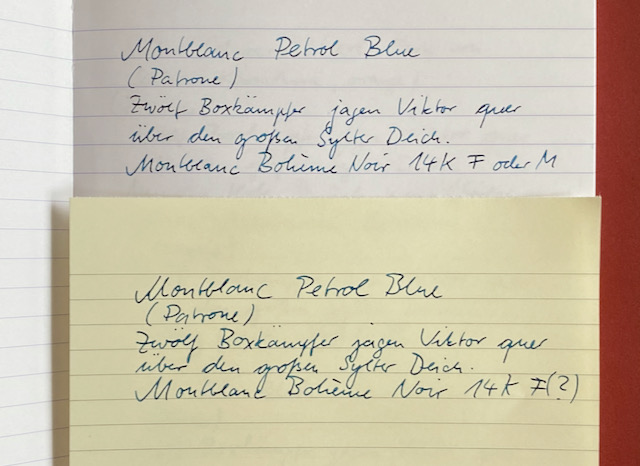 Montblanc Petrol Blue
(Patrone)
Zwölf Boxkämpfer jagen Viktor quer
über den großen Sylter Deich.
Montblanc Bohème Noir 14K F oder M
Montblanc Petrol Blue
(Patrone)
Zwölf Boxkämpfer jagen Viktor quer
über den großen Sylter Deich.
Montblanc Bohème Noir 14K F(?)